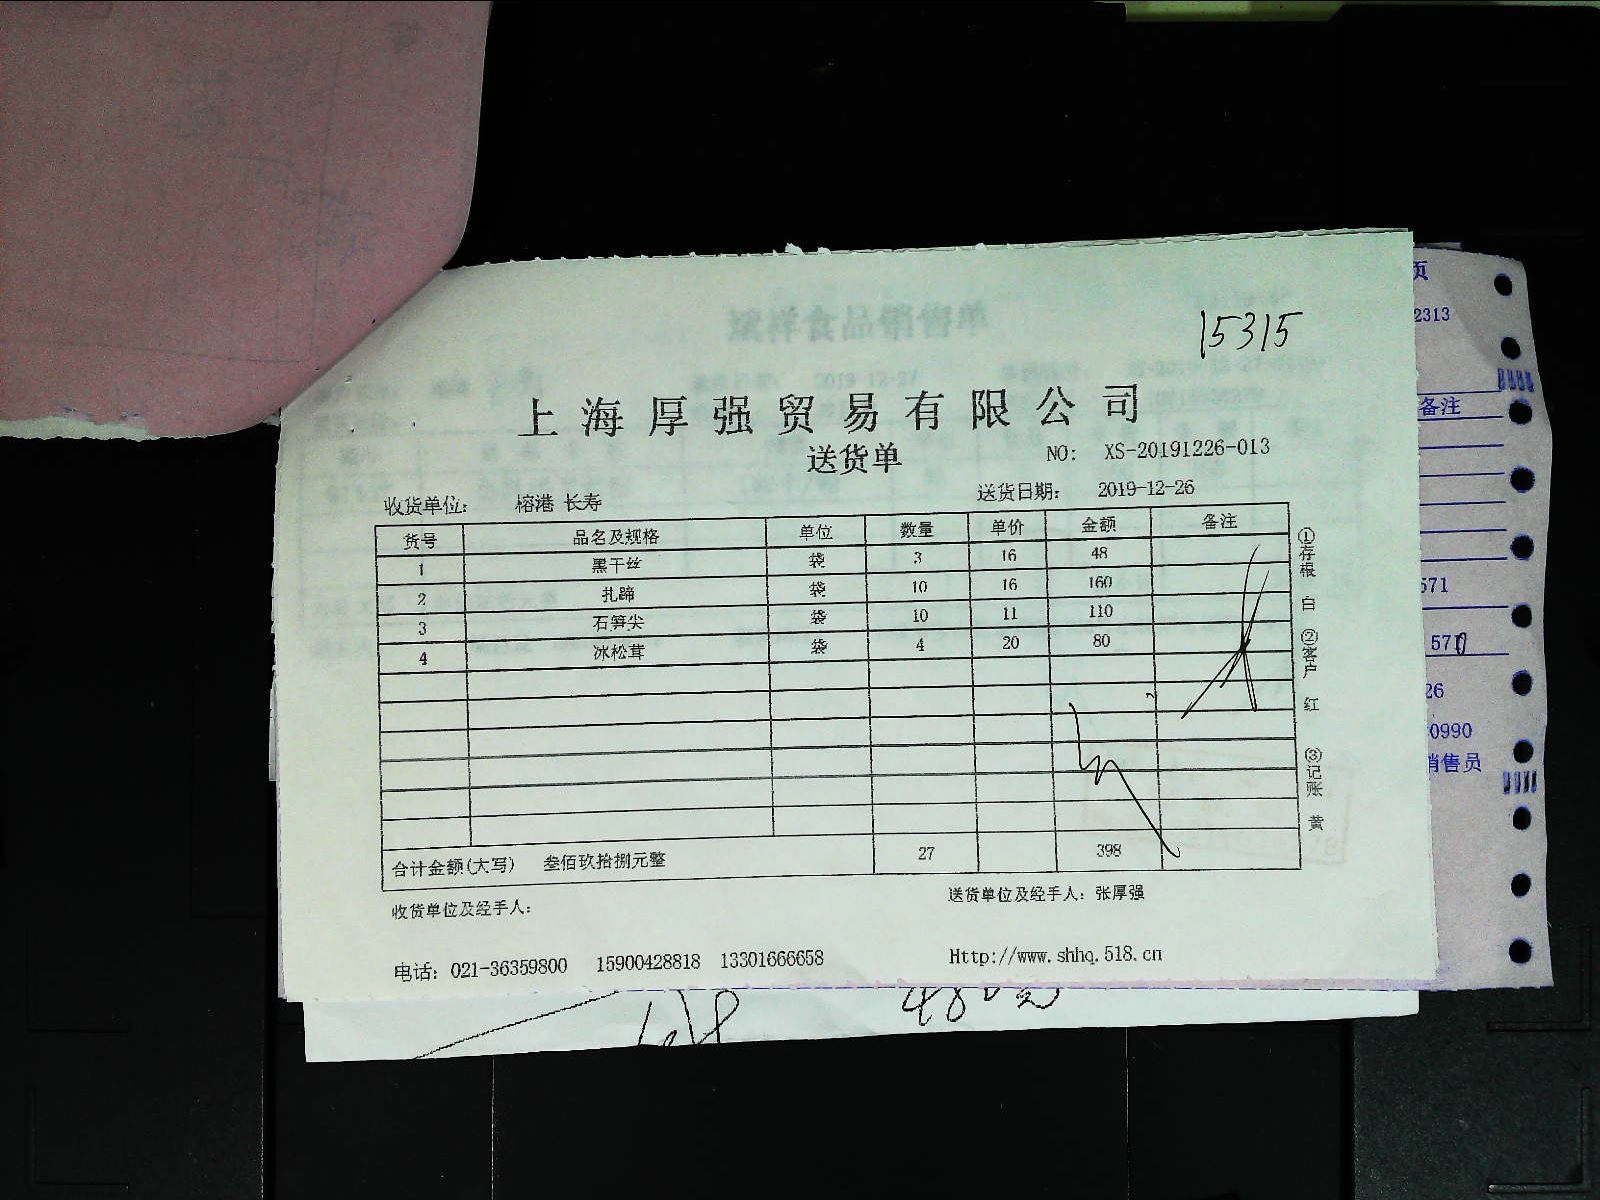 15315
上海厚强贸易有限公司
送货单
NO: XS-20191226-013
收货单位: 榕港 长寿
送货日期: 2019-12-26
货号 品名及规格 单位 数量 单价 金额 备注
1 黑干丝 袋 3 16 48
2 扎蹄 袋 10 16 160
3 石笋尖 袋 10 11 110
4 冰松茸 袋 4 20 80
合计金额(大写) 叁佰玖拾捌元整 27 398
收货单位及经手人:
送货单位及经手人: 张厚强
电话: 021-36359800 15900428818 13301666658
Http://www.shhq.518.cn
①存根 白 ②客户 红 ③记账 黄
页
2313
备注
571
571
26
0990
销售员